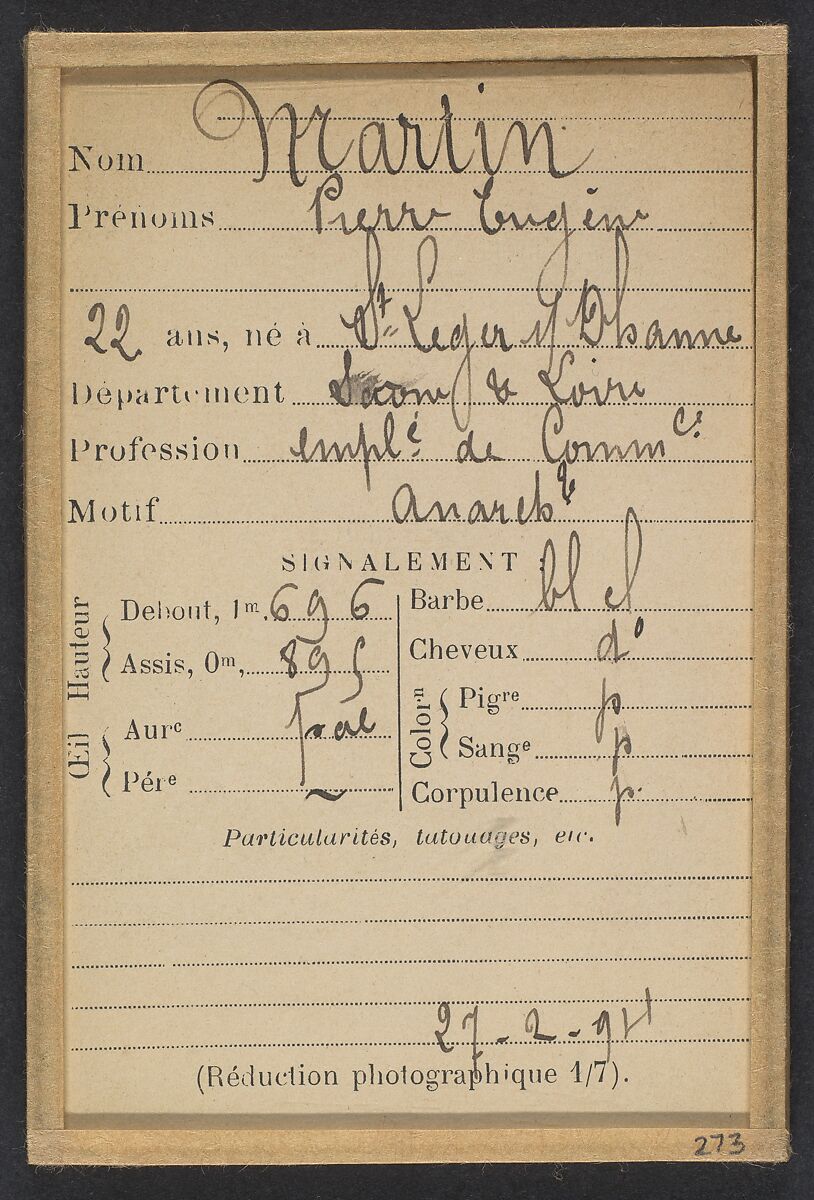 Nom Martin
Prénoms Pierre Eugène
22 ans, né à St Leger s/ Dhanne
Département Saone & Loire
Profession emplé de Commce
Motif anarchte
SIGNALEMENT :
Hauteur
Debout, 1m,696
Assis, 0m, 895
Œil
Aurc
Pére ~
Barbe bl cl
Cheveux do
Colorn
Pigre p
Sange p
Corpulence p.
Particularités, tatouages, etc.
27-2-94
(Réduction photographique 1/7).
273